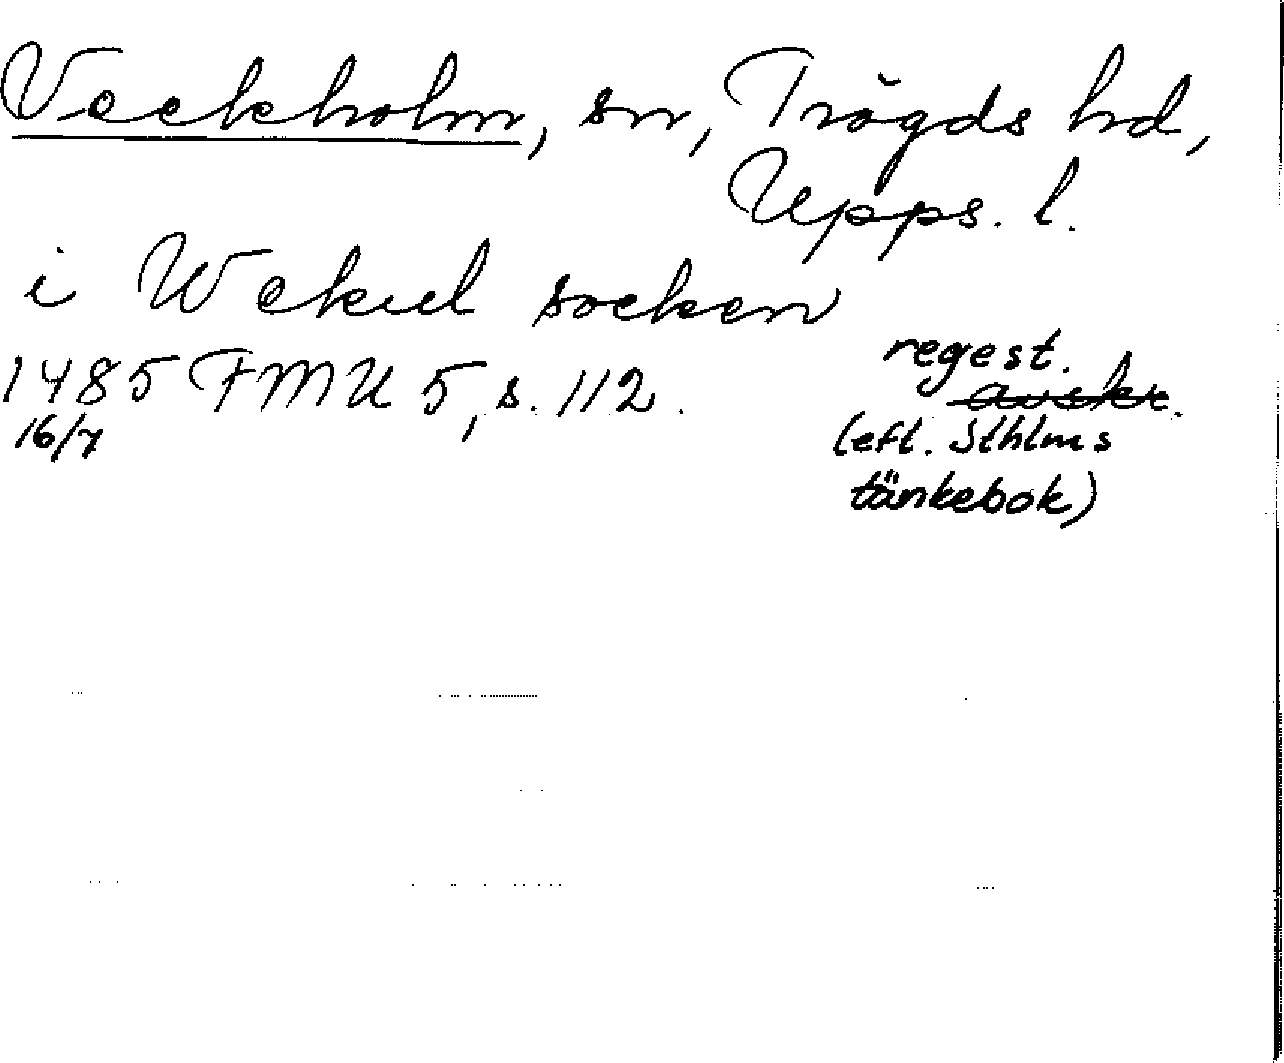 Veckholm, sn, Trögds hd,
Upps. l.
i Wekul socken
1485 FMU 5, s. 112.
16/7
regest.
avskr.
(efl. Sthlms
tänkebok)